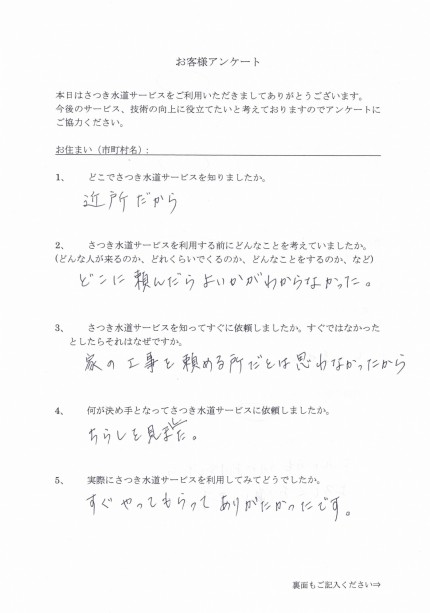 お客様アンケート
本日はさつき水道サービスをご利用いただきましてありがとうございます。
今後のサービス、技術の向上に役立てたいと考えておりますのでアンケートに
ご協力ください。
お住まい（市町村名）：
1、　どこでさつき水道サービスを知りましたか。
近所だから
2、　さつき水道サービスを利用する前にどんなことを考えていましたか。
(どんな人が来るのか、どれくらいでくるのか、どんなことをするのか、など)
どこに頼んだらよいかがわからなかった。
3、　さつき水道サービスを知ってすぐに依頼しましたか。すぐではなかった
としたらそれはなぜですか。
家の工事を頼める所だとは思わなかったから
4、　何が決め手となってさつき水道サービスに依頼しましたか。
ちらしを見た。
5、　実際にさつき水道サービスを利用してみてどうでしたか。
すぐやってもらってありがたかったです。
裏面もご記入ください⇒